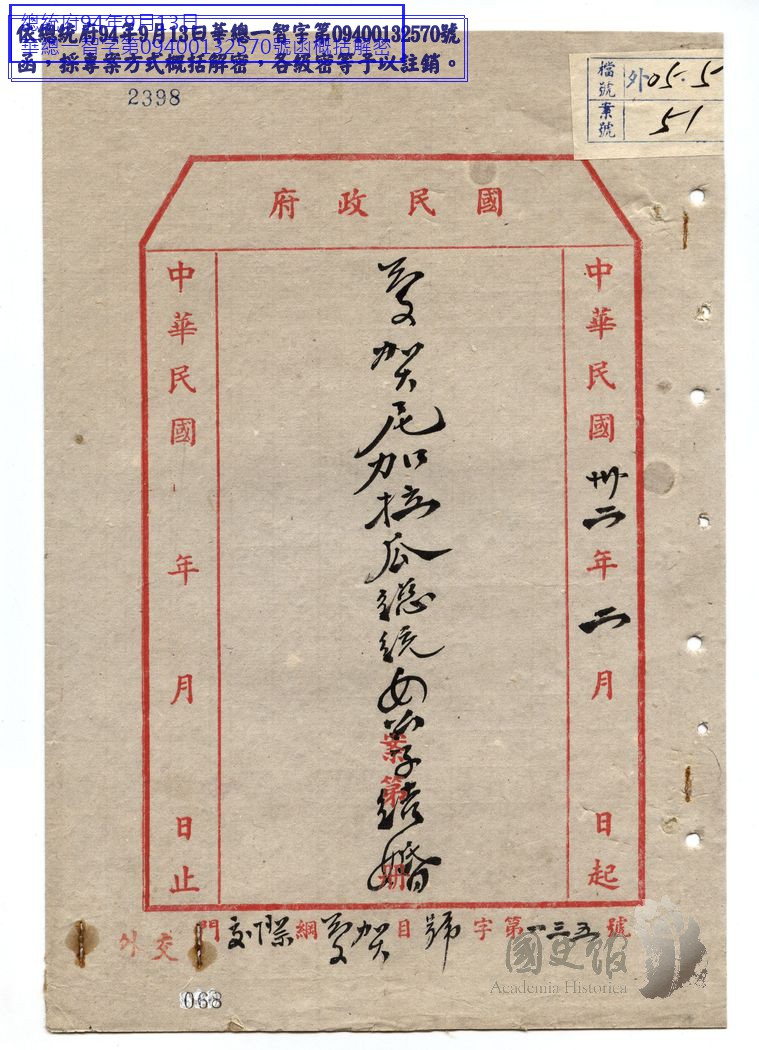 總統府94年9月13日
華總一智字第09400132570號函概括解密
依總統府94年9月13日華總一智字第09400132570號
函，採專案方式概括解密，各級密等予以註銷。
2398
檔號 外05.5
案號 51
國民政府
中華民國卅二年二月 日起
慶賀尼加拉瓜總統女公子结婚
案第 册
中華民國 年 月 日止
外交門交際綱慶賀目號字第一三五號
國史館
Academia Historica
068